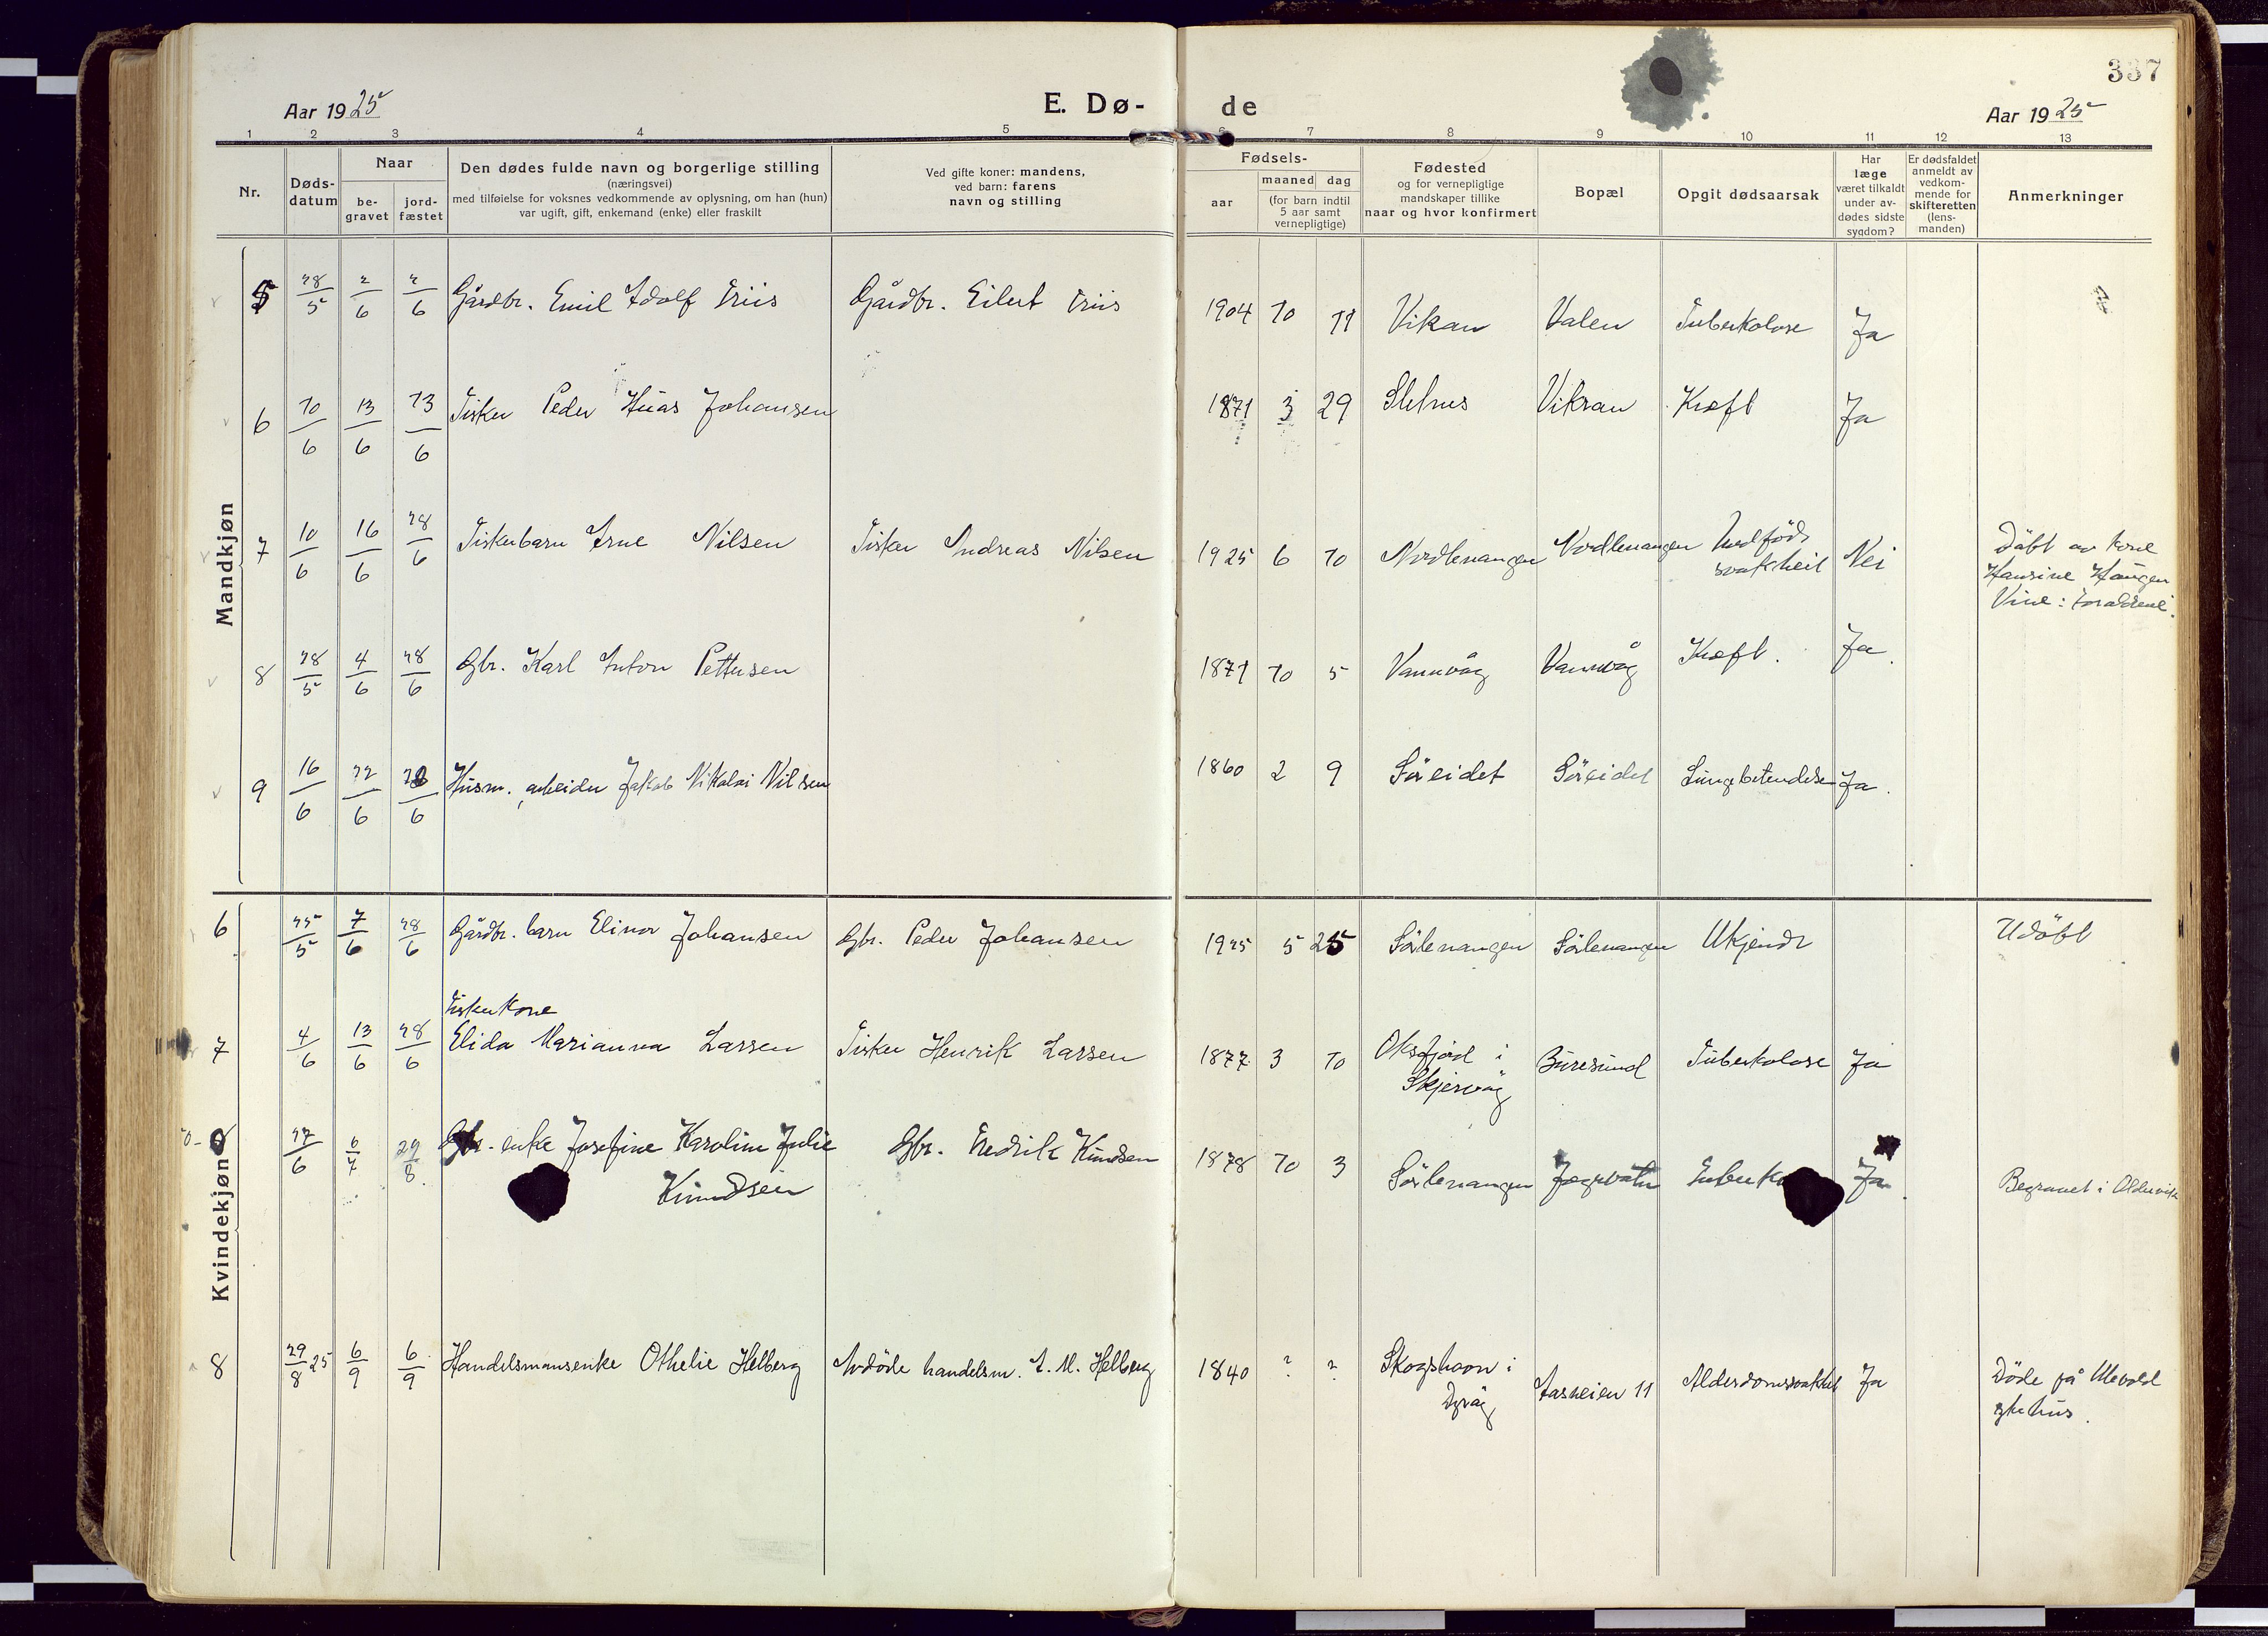 337
Aar 1925
E. Dø-
de
Aar 1925
1 2 3 4 5 6 7 8 9 10 11 12 13
Nr.
Døds-
datum
Naar
be-
gravet
jord-
fæstet
Den dødes fulde navn og borgerlige stilling
(næringsvei)
med tilføielse for voksnes vedkommende av oplysning, om han (hun)
var ugift, gift, enkemand (enke) eller fraskilt
Ved gifte koner: mandens,
ved barn: farens
navn og stilling
Fødsels-
aar
maaned dag
(for barn indtil
5 aar samt
vernepligtige)
Fødested
og for vernepligtige
mandskaper tillike
naar og hvor konfirmert
Bopæl
Opgit dødsaarsak
Har
læge
været tilkaldt
under av-
dødes sidste
sygdom?
Er dødsfaldet
anmeldt av
vedkom-
mende for
skifteretten
(lens-
manden)
Anmerkninger
Mandkjøn
5 28/5 2/6 2/6 Gårdbr. Emil Adolf Friis Gårdbr. Eilert Friis 1904 10 11 Vikan Valen Tuberkolose Ja
6 10/6 13/6 13/6 Fisker Peder Johansen 1871 3 29 Vikran Kræft Ja
7 10/6 16/6 28/6 Fiskerbarn Arne Nilsen Fisker Andreas Nilsen 1925 6 10 Nordlenangen Nordlenangen Medfødt
svakheit Nei Døbt av kone
Hansine Haugen
8 28/5 4/6 28/6 Gbr. Karl Anton Pettersen 1871 10 5 Vannvåg Vannvåg Kræft. Ja.
9 16/6 22/6 28/6 Husm. arbeider Jakob Nikolai Nilsen 1860 2 9 Søreidet Søreidet Lungebetendelse Ja.
Kvindekjøn
6 25/5 7/6 28/6 Gårdbr. barn Elinor Johansen Gbr. Peder Johansen 1925 5 25 Sørlenangen Sørlenangen Ukjendt Udøbt
Fiskerkone
7 4/6 13/6 28/6 Elida Marianna Larsen Fisker Henrik Larsen 1877 3 10 Oksfjord i
Skjervøy Buresund Tuberkolose Ja
27/6 6/7 29/8 Gbr. enke Josefine Karoline Julie
Knudsen Gbr. Fredrik Knudsen 1878 10 3 Sørlenangen Jægervatn Ja Begravet i Oldervik
8 29/8 25 6/9 6/9 Handelsmansenke Othelie Helberg Avdøde handelsm. A. M. Helberg 1840 ? ? Skogshavn i
Dyrøy Aasveien 11 Alderdomssvakhet Ja Døde på Ulevold
sykehus.